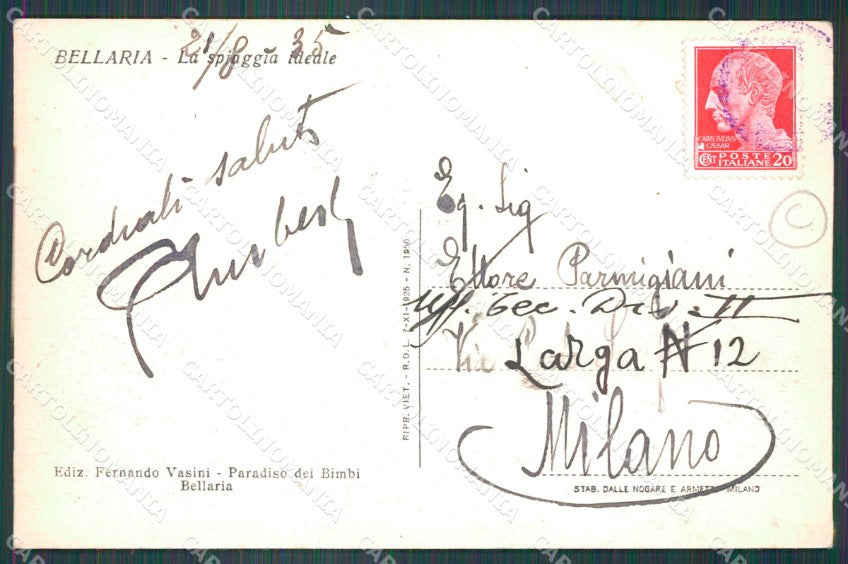 21/8 35
BELLARIA - La spiaggia ideale
Cordiali saluti
CAIVS IVLIVS
CAESAR
CENT POSTE ITALIANE 20
C
Eg. Sig
Ettore Parmigiani
Uff. Tec. Div. II
Via
Larga N 12
Milano
RIPR. VIET. - R.D.L. 7-XI-1925 - N. 1950
Ediz. Fernando Vasini - Paradiso dei Bimbi
Bellaria
STAB. DALLE NOGARE E ARMETTI - MILANO
CARTOLINOMANIA